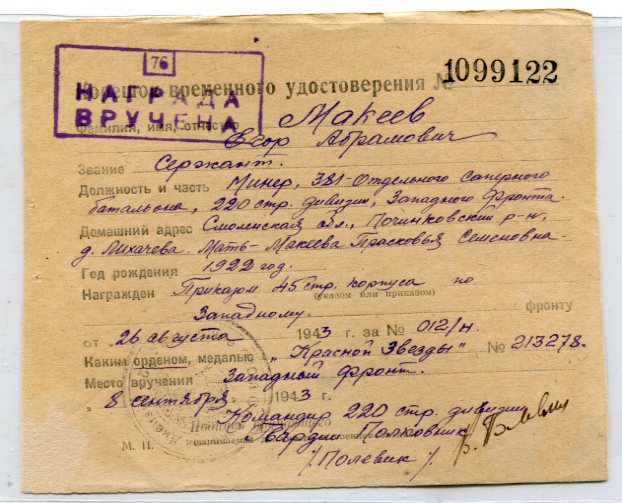 76
НАГРАДА
ВРУЧЕНА
Корешок временного удостоверения № 1099122
Фамилия, имя, отчество Макеев
Егор Абрамович
Звание Сержант.
Должность и часть Минер, 381 Отдельного Саперного
батальона, 220 стр. дивизии, Западного Фронта.
Домашний адрес Смоленская обл., Починковский р-н,
д. Лихачева. Мать - Макеева Прасковья Семеновна
Год рождения 1922 год.
Награжден Приказом 45 стр. корпуса по
(указом или приказом)
Западному. фронту
от „26 августа 1943 г. за № 012/н.
Каким орденом, медалью „Красной Звезды" № 213278.
Место вручения Западный Фронт.
„8 сентября 1943 г.
Командир 220 стр. дивизии
Подпись
Гвардии Полковник
М. П. занимаемая
/Полевик/.